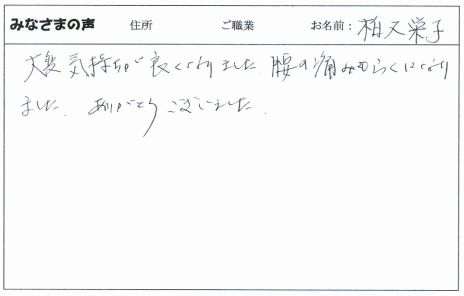 みなさまの声 住所 ご職業 お名前：柏又栄子
大変気持ちが良くなりました。腰の痛みもらくになり
ました。ありがとうございました。